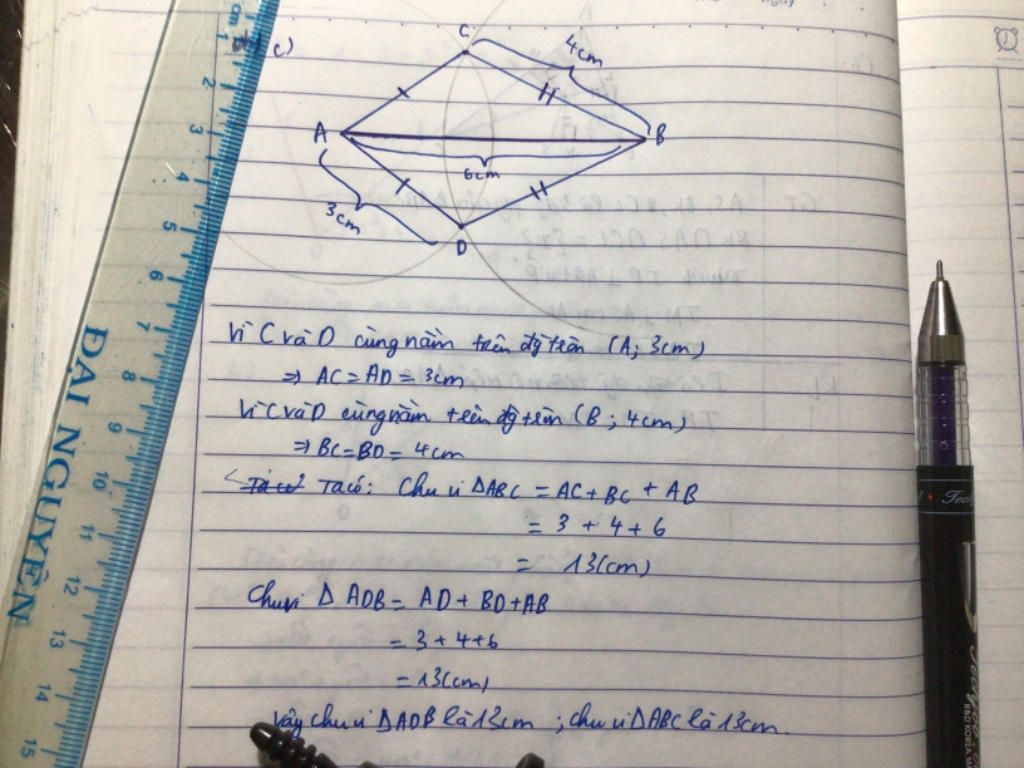 c)
C
4cm
A
B
6cm
3cm
D
Vì C và D cùng nằm trên đg tròn (A; 3cm)
⇒ AC = AD = 3cm
Vì C và D cùng nằm trên đg tròn (B; 4cm)
⇒ BC = BD = 4cm
Ta có: Chu vi ΔABC = AC + BC + AB
= 3 + 4 + 6
= 13(cm)
Chu vi Δ ADB = AD + BD + AB
= 3 + 4 + 6
= 13(cm)
Vậy chu vi ΔADB là 13cm ; chu vi ΔABC là 13cm.
cm 1 2 3 4 5 6 7 8 9 10 11 12 13 14 15
ĐẠI NGUYÊN